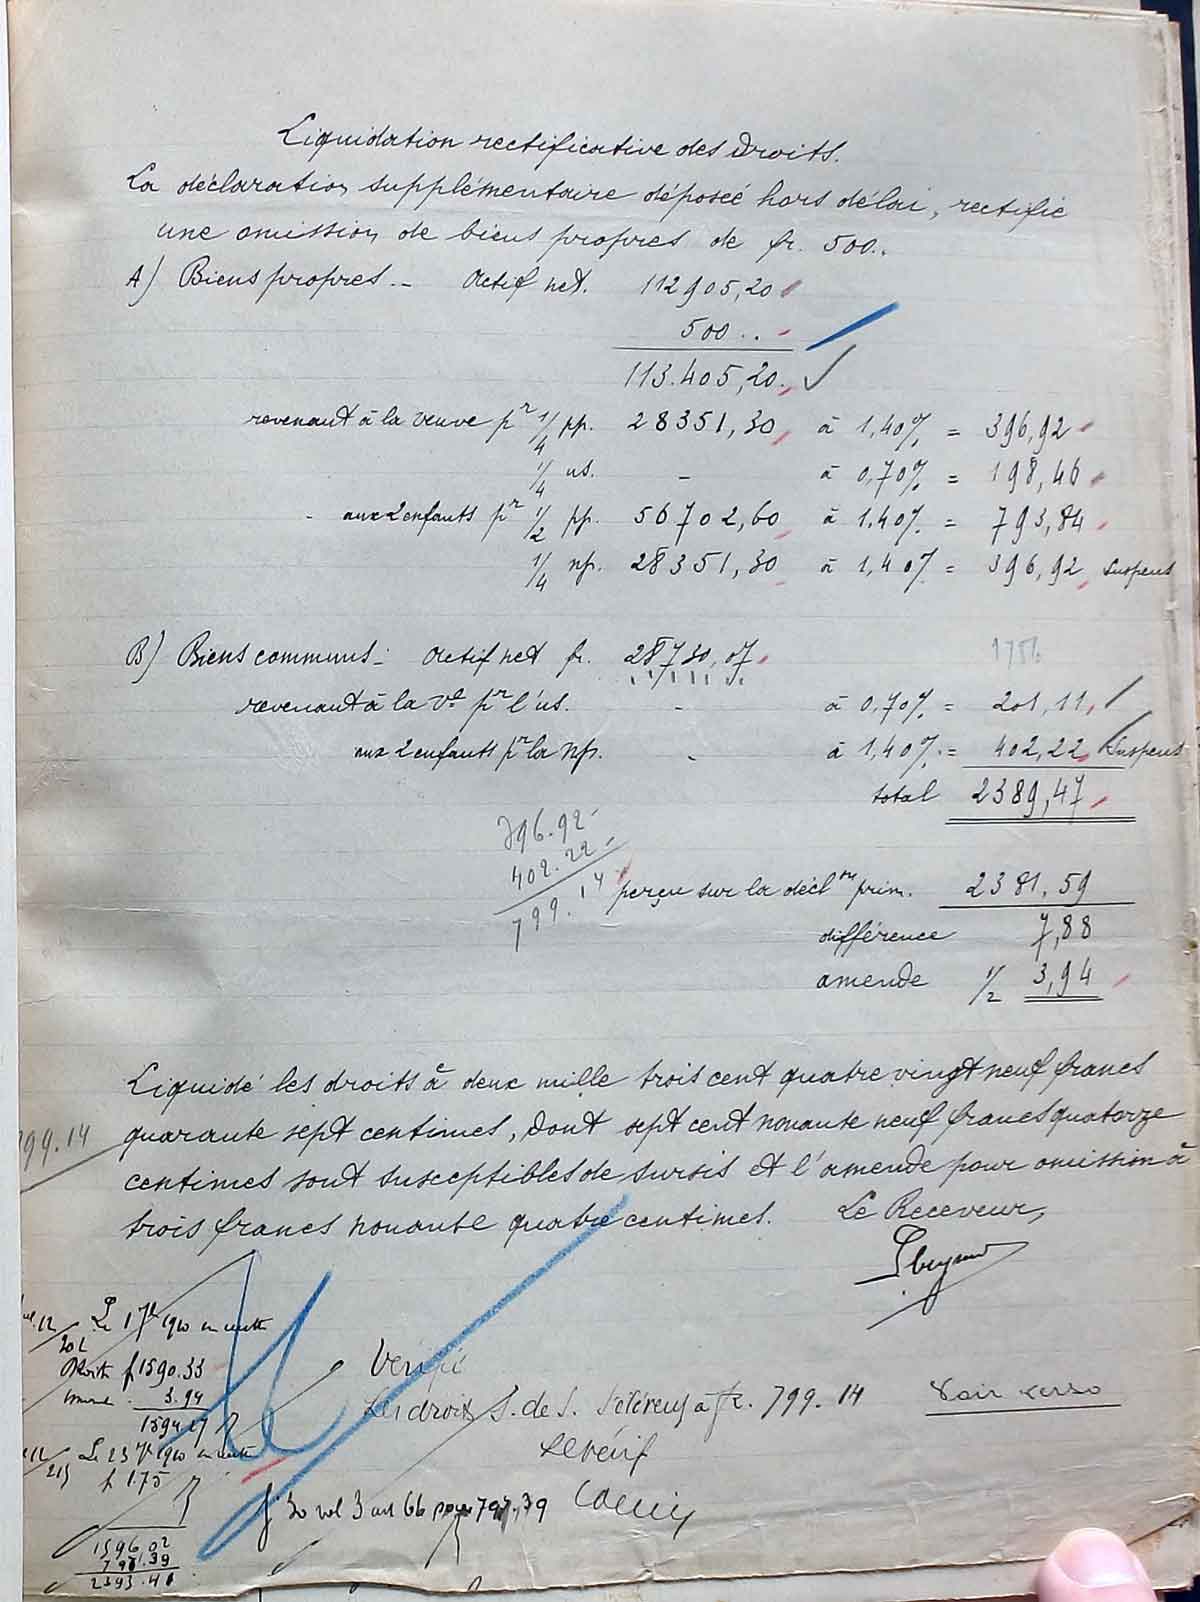 Liquidation rectificative des droits.
La déclaration supplémentaire déposée hors délai, rectifie
une omission de biens propres de fr. 500..
A) Biens propres. - Actif net. 112905,20
500..
113.405,20.
revenant à la veuve pr 1/4 pp. 28351,30 à 1,40% = 396,92
1/4 us. - à 0,70% = 198,46
aux 2 enfants pr 1/2 pp. 56702,60 à 1.40% = 793,84
1/4 np. 28351,30 à 1,40% = 396,92 suspens
B) Biens communs: Actif net fr. 28730,07.
revenant à la Ve pr l'us. - à 0.70% = 201,11
aux 2 enfants pr la np. - à 1,40% = 402,22 suspens
total 2389,47
396.92
402.22
799.14
perçu sur la déclon prim. 2381.59
différence 7,88
amende 1/2 3,94
Liquidé les droits à deux mille trois cent quatre vingt neuf francs
quarante sept centimes, dont sept cent nonante neuf francs quatorze
799.14
centimes sont susceptibles de sursis et l'amende pour omission à
trois francs nonante quatre centimes. Le Receveur,
Le 1 7bre 1910
Droits f 1590.33
3.94
1594.27
Le 23 7bre 1910
215 f 1.75
Vérifié
Les droits S. de S. s'élèvent à fr. 799.14
Voir verso
Le vérif
30 vol 3 art 66 pour 797,39
1596.02
797.39
2393.41